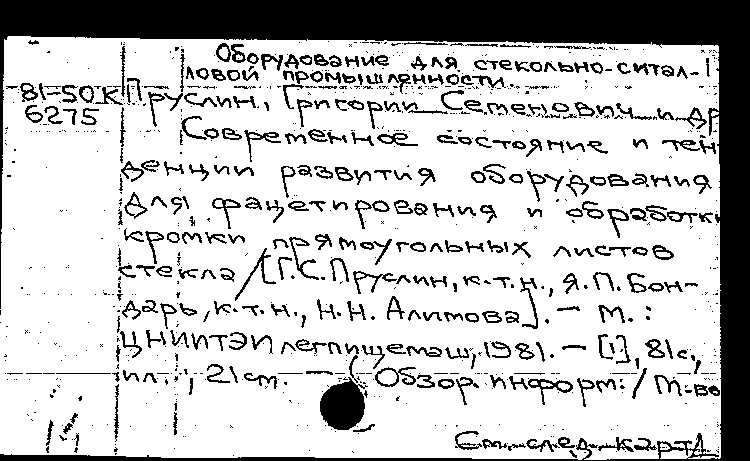 Оборудование для стекольно-ситал-
ловой промышленности.
81-50К Пруслин, Григорий Семенович и др
6275
Современное состояние и тен
денции развития оборудования
для фацетирования и обработки
кромки прямоугольных листов
стекла / [Г.С. Пруслин, к.т.н., Я.П. Бон-
дарь, к.т.н., Н.Н. Алимова]. — М. :
ЦНИИТЭИлегпищемаш, 1981. — [1], 81с.,
ил.; 21см. — Обзор. информ. / М-во
См. след. карт.